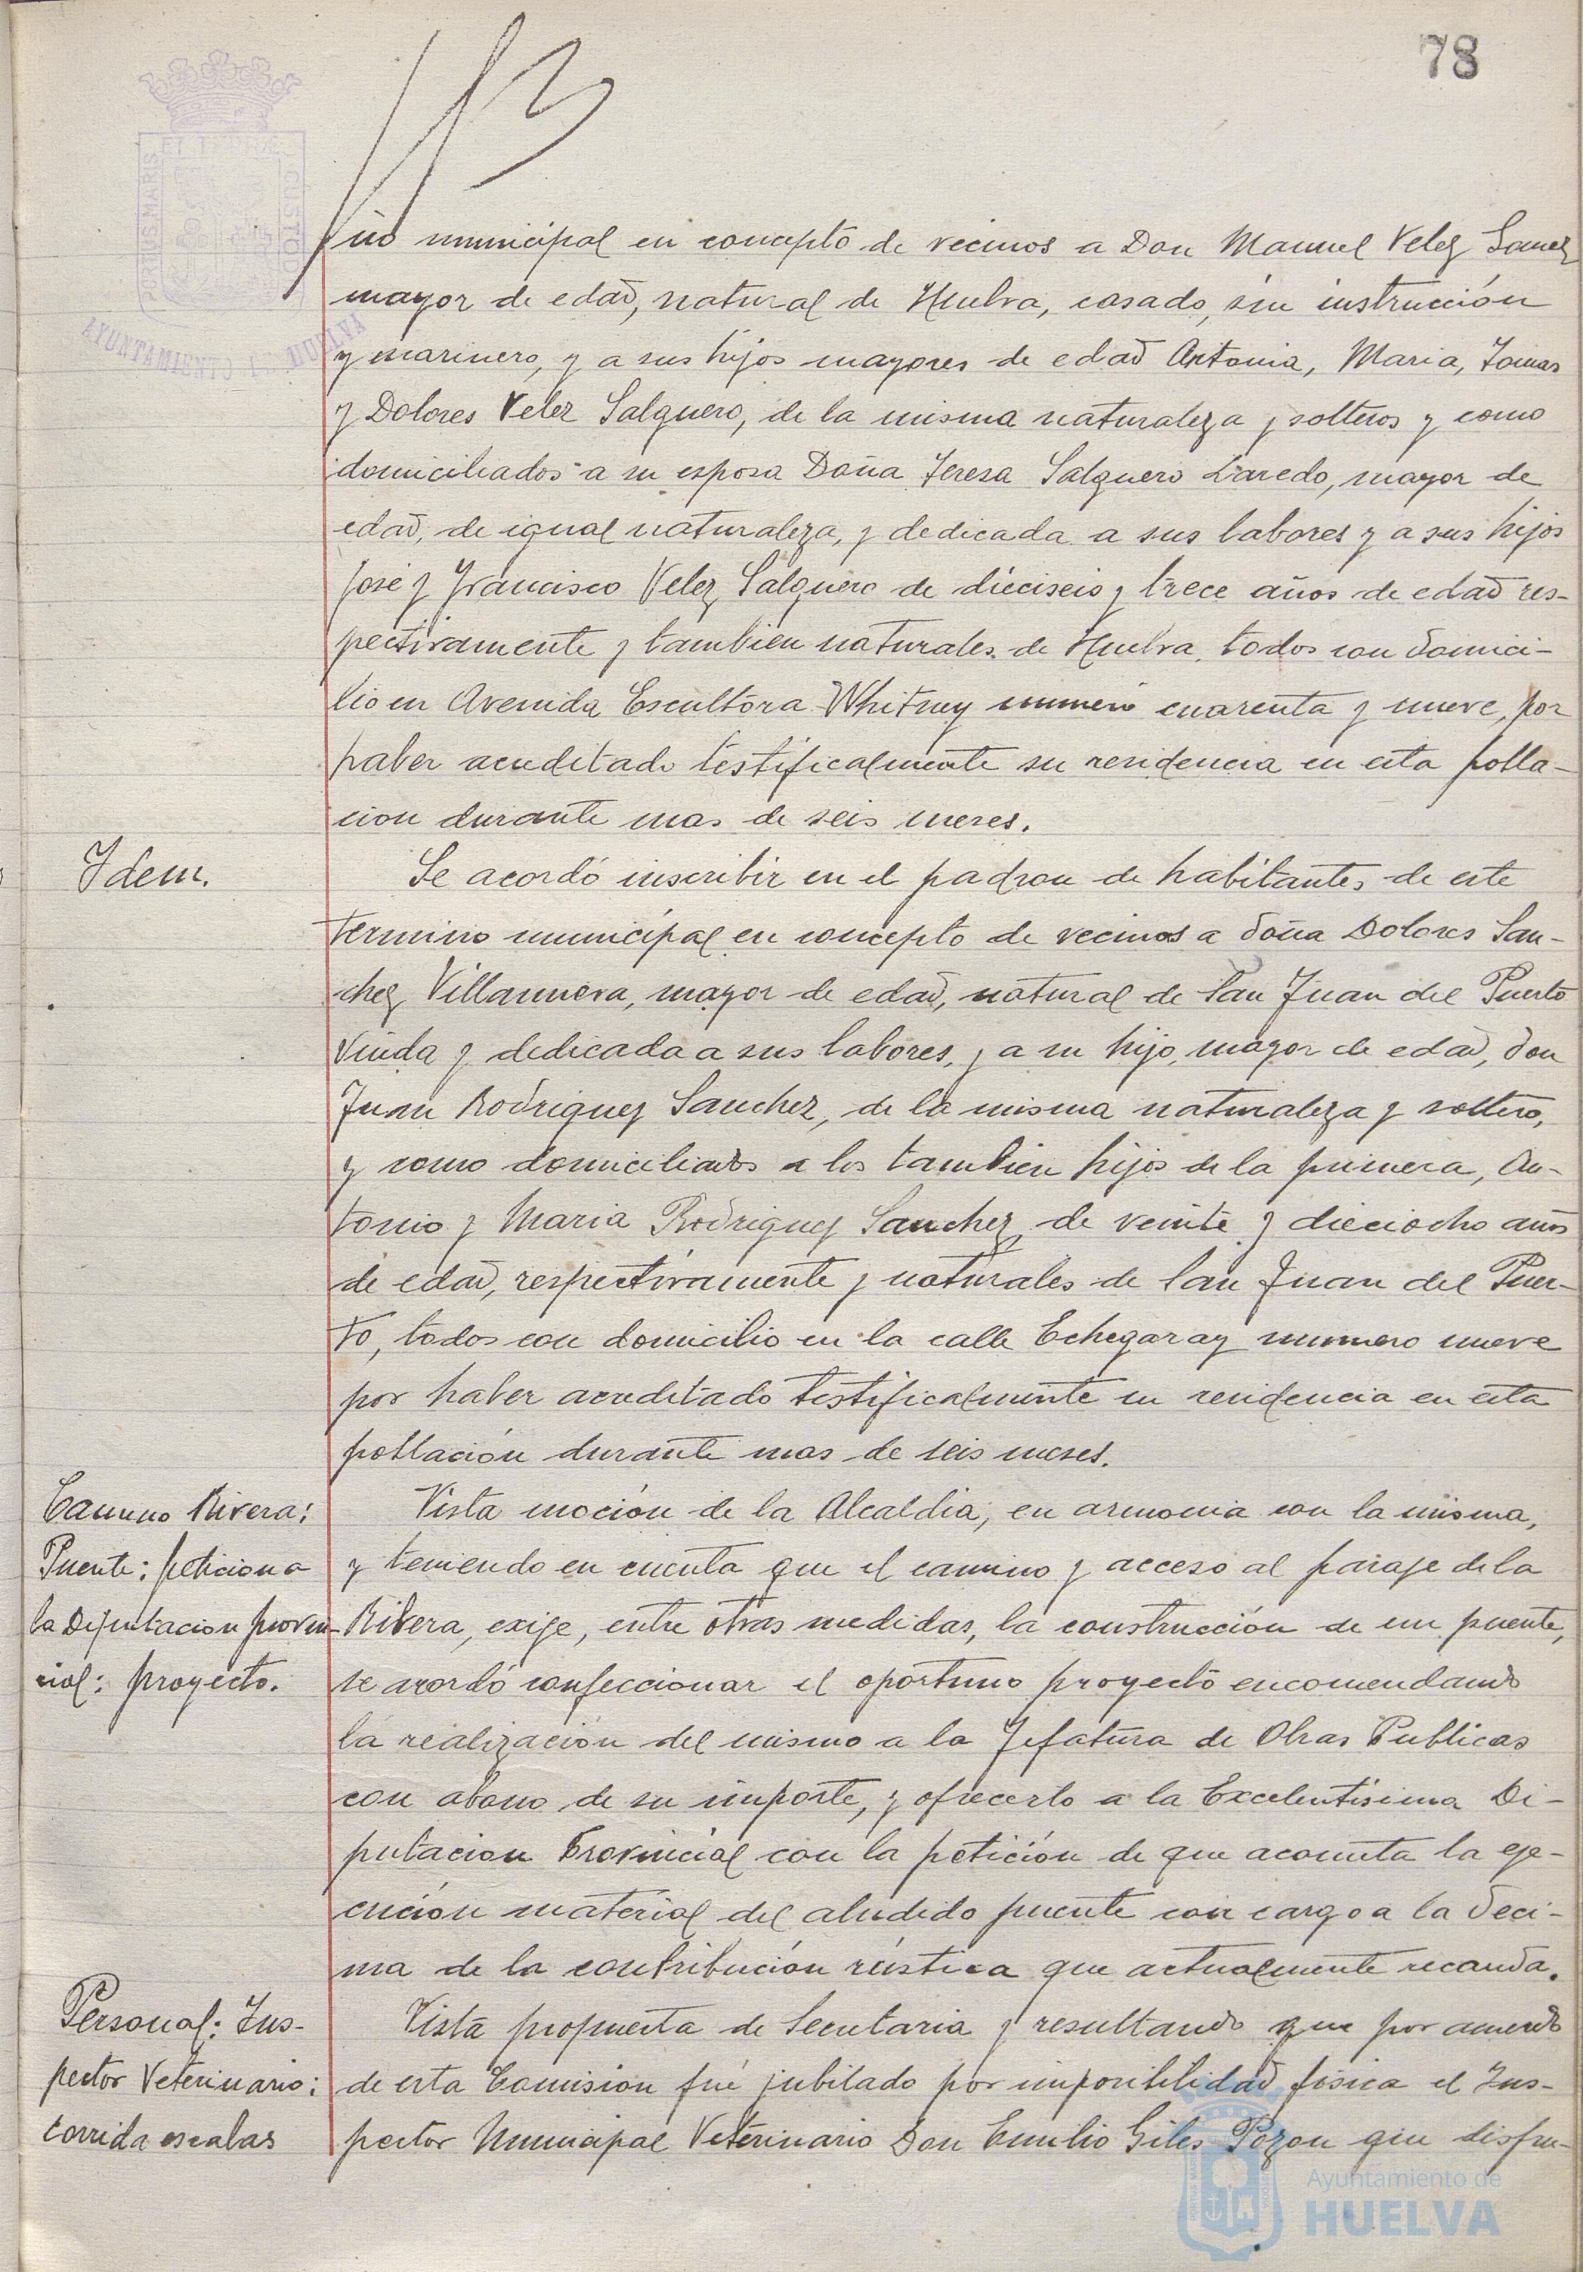 78
PORTUS MARIS ET TERRAE CUSTODIA
AYUNTAMIENTO DE HUELVA
no municipal en concepto de vecinos a Don Manuel Velez
mayor de edad, natural de Huelva, casado, sin instrucción
y marinero, y a sus hijos mayores de edad Antonia, Maria, Tomas
y Dolores Velez Salguero, de la misma naturaleza y solteros y como
domiciliados a su esposa Doña Teresa Salguero Laredo, mayor de
edad, de igual naturaleza, y dedicada a sus labores y a sus hijos
José y Francisco Velez Salguero de dieciseis y trece años de edad res-
pectivamente y tambien naturales de Huelva, todos con domici-
lio en Avenida Escultora Whitney numero cuarenta y nueve, por
haber acreditado testificalmente su residencia en esta pobla-
cion durante mas de seis meses.
Idem.
Se acordó inscribir en el padron de habitantes de este
termino municipal en concepto de vecinos a doña Dolores San-
chez Villanueva, mayor de edad, natural de San Juan del Puerto
viuda y dedicada a sus labores, y a su hijo, mayor de edad, don
Juan Rodriguez Sanchez, de la misma naturaleza y soltero,
y como domiciliados a los tambien hijos de la primera, An-
tonio y Maria Rodriguez Sanchez, de veinte y dieciocho años
de edad, respectivamente y naturales de San Juan del Puer-
to, todos con domicilio en la calle Echegaray numero nueve
por haber acreditado testificalmente su residencia en esta
población durante mas de seis meses.
Camino Rivera:
Puente: peticion a
la Diputacion provin-
cial: proyecto.
Vista moción de la Alcaldia, en armonia con la misma,
y teniendo en cuenta que el camino y acceso al paraje de la
Ribera, exije, entre otras medidas, la construcción de un puente,
se acordó confeccionar el oportuno proyecto encomendando
la realización del mismo a la Jefatura de Obras Publicas
con abono de su importe, y ofrecerlo a la Excelentisima Di-
putacion Provincial con la petición de que acometa la eje-
cución material del aludido puente con cargo a la deci-
ma de la contribución rústica que actualmente recauda.
Personal: Ins-
pector Veterinario:
corrida escalas
Vista propuesta de Secretaria y resultando que por acuerdo
de esta Comisión fué jubilado por imposibilidad fisica el Ins-
pector Municipal Veterinario Don Emilio Giles Pozon que disfru-
Ayuntamiento de
HUELVA